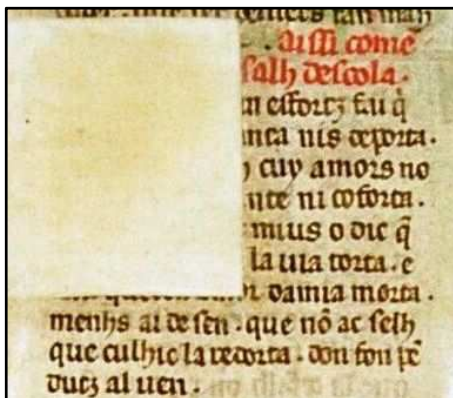 . aissi comē
salh descola .
esfortz fau q̄
nis deporta .
cuy amors no
ni coforta .
o dic q̄
la uia torta . e
damia morta .
menhs ai de sen . que nō ac selh
que culhic la redorta . don fon pē
dutz al uen .